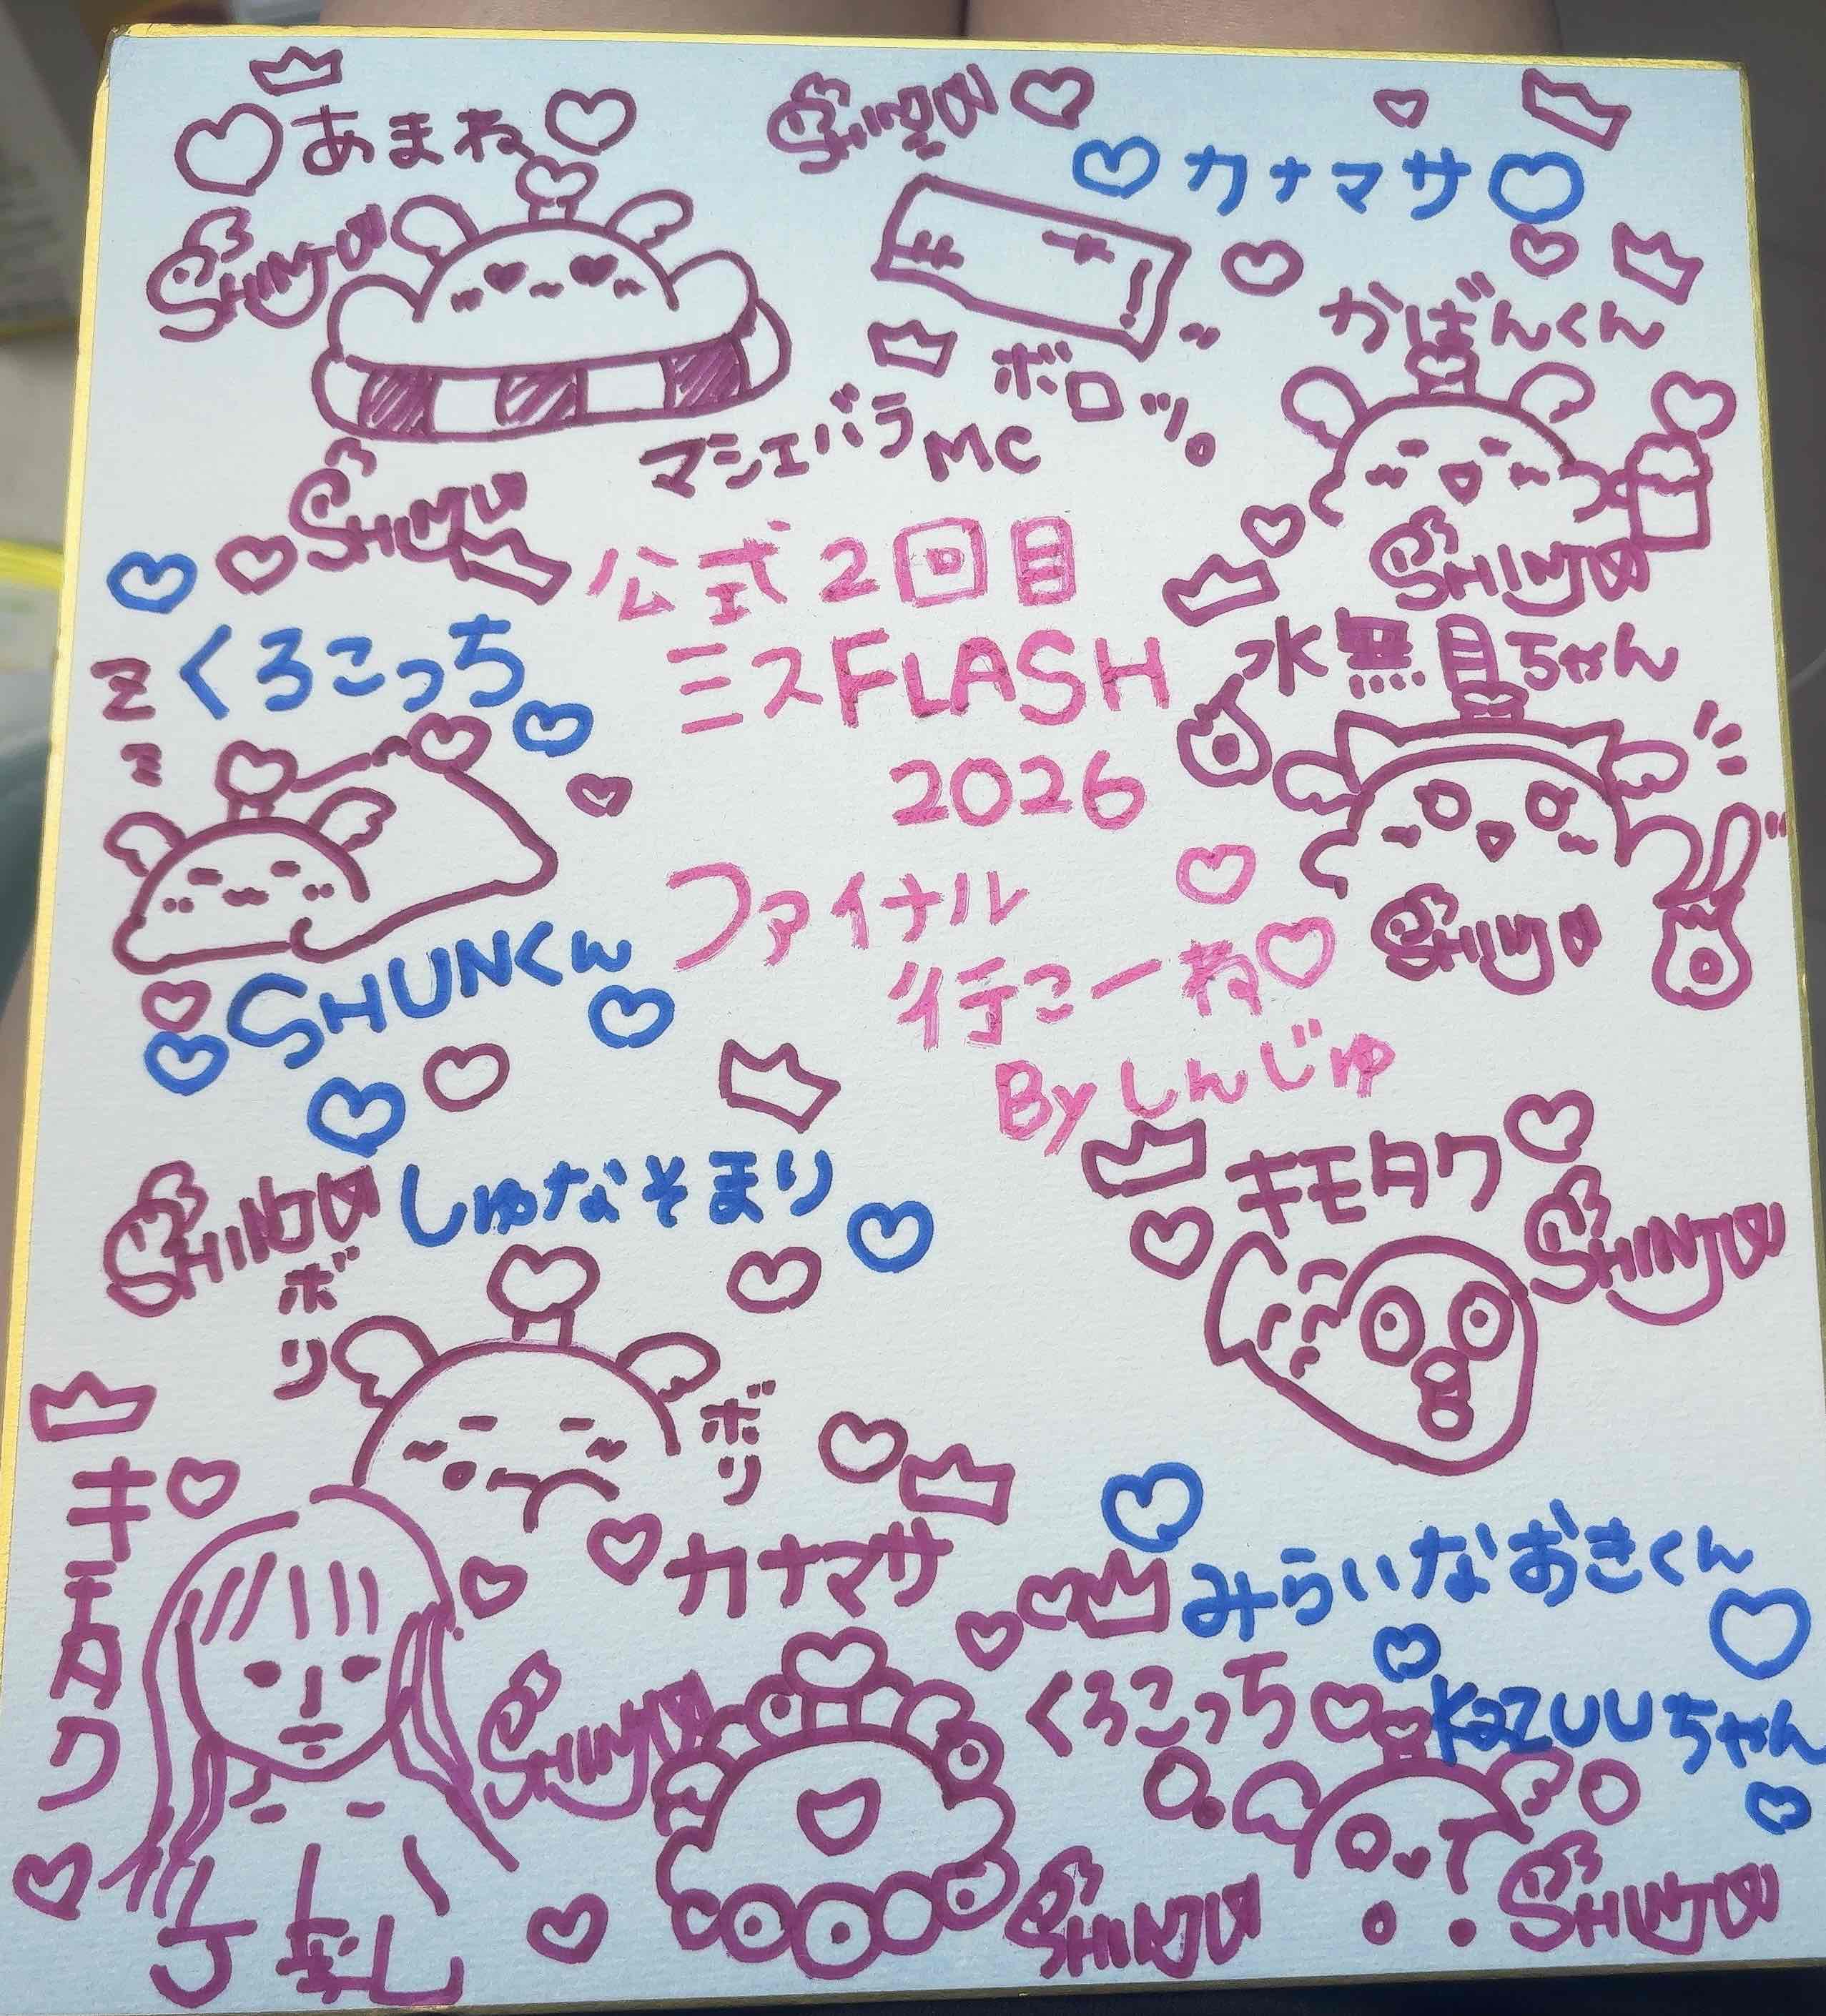 あまね
SHINJU
カナマサ
SHINJU
かばんくん
ボロッ。
マシェバラMC
SHINJU
SHINJU
公式2回目
ミスFLASH
2026
ファイナル
行こーね
Byしんじゅ
水無目ちゃん
SHINJU
くろこっち
z
z
SHUNくん
SHINJU
しゅなそまり
ボリ
ボリ
キモタク
SHINJU
キモタク
カナマサ
SHINJU
みらいなおきくん
くろこっち
KaZUUちゃん
SHINJU
SHINJU